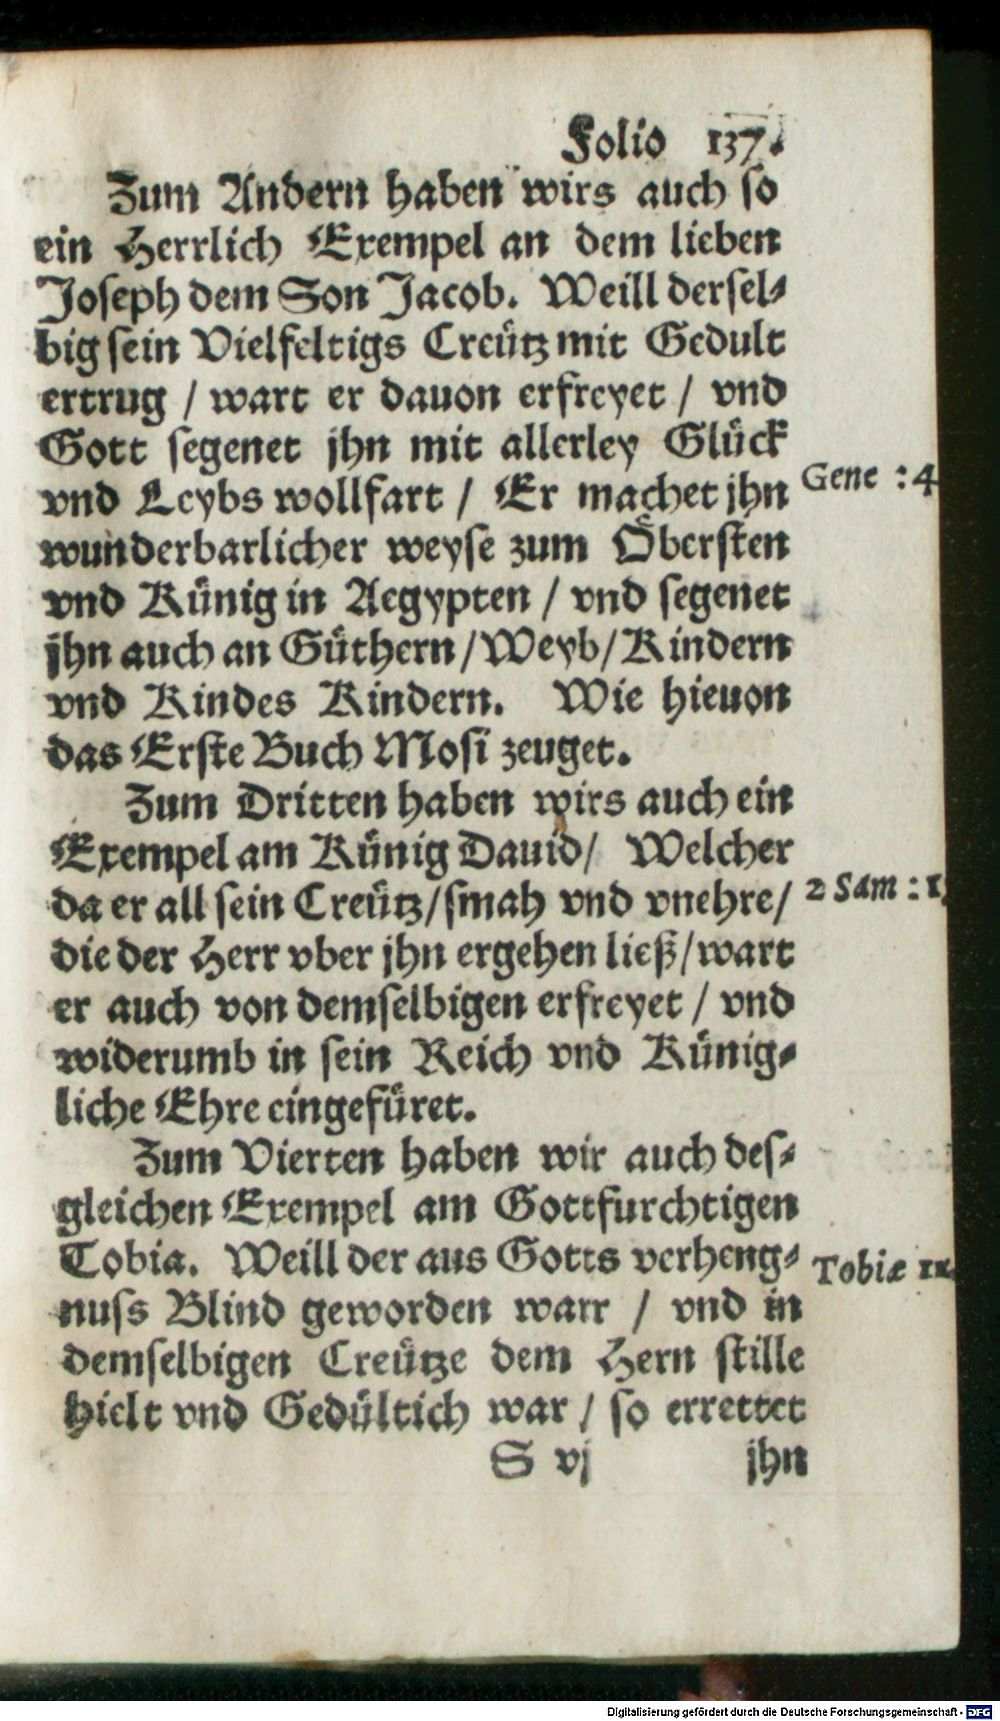 Folio 137.
Zum Andern haben wirs auch so
ein Herrlich Exempel an dem lieben
Joseph dem Son Jacob. Weill dersel-
big sein Vielfeltigs Creütz mit Gedult
ertrug / wart er dauon erfreyet / vnd
Gott segenet jhn mit allerley Glück
vnd Leybs wollfart / Er machet jhn
Gene : 4
wunderbarlicher weyse zum Öbersten
vnd Künig in Aegypten / vnd segenet
jhn auch an Güthern / Weyb / Kindern
vnd Kindes Kindern. Wie hieuon
das Erste Buch Mosi zeuget.
Zum Dritten haben wirs auch ein
Exempel am Künig Dauid / Welcher
da er all sein Creütz / smah vnd vnehre /
2 Sam : 1
die der Herr vber jhn ergehen ließ / wart
er auch von demselbigen erfreyet / vnd
widerumb in sein Reich vnd Künig-
liche Ehre eingefüret.
Zum Vierten haben wir auch des-
gleichen Exempel am Gottfurchtigen
Tobia. Weill der aus Gotts verheng-
Tobiæ
nuss Blind geworden warr / vnd in
demselbigen Creütze dem Hern stille
hielt vnd Gedültich war / so errettet
S vj jhn
Digitalisierung gefördert durch die Deutsche Forschungsgemeinschaft - DFG